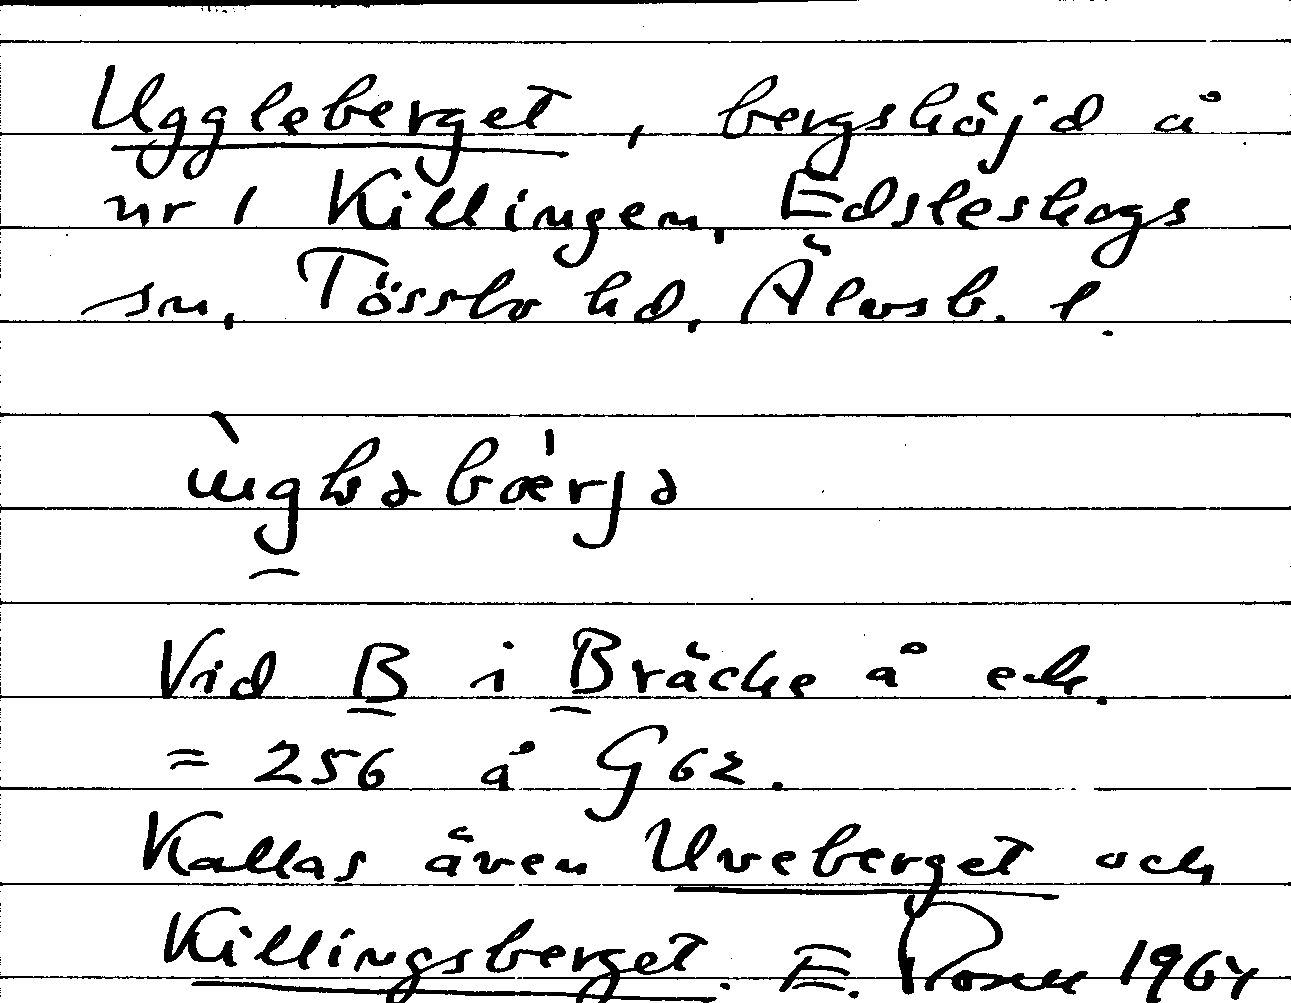 Uggleberget, bergshöjd å
nr 1 Killingen, Edsleskogs
sn, Tössbo hd, Älvsb. l.
Vid B i Bräcke å ek.
= 256 å G62.
Kallas även Uveberget och
Killingsberget. E. 1964